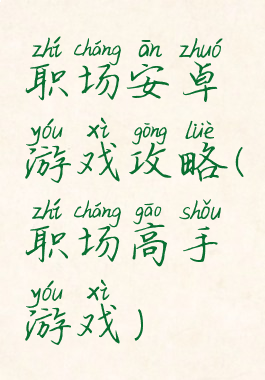 zhí cháng ān zhuó
职场安卓
yóu xì gōng lüè
游戏攻略(
zhí cháng gāo shǒu
职场高手
yóu xì
游戏)